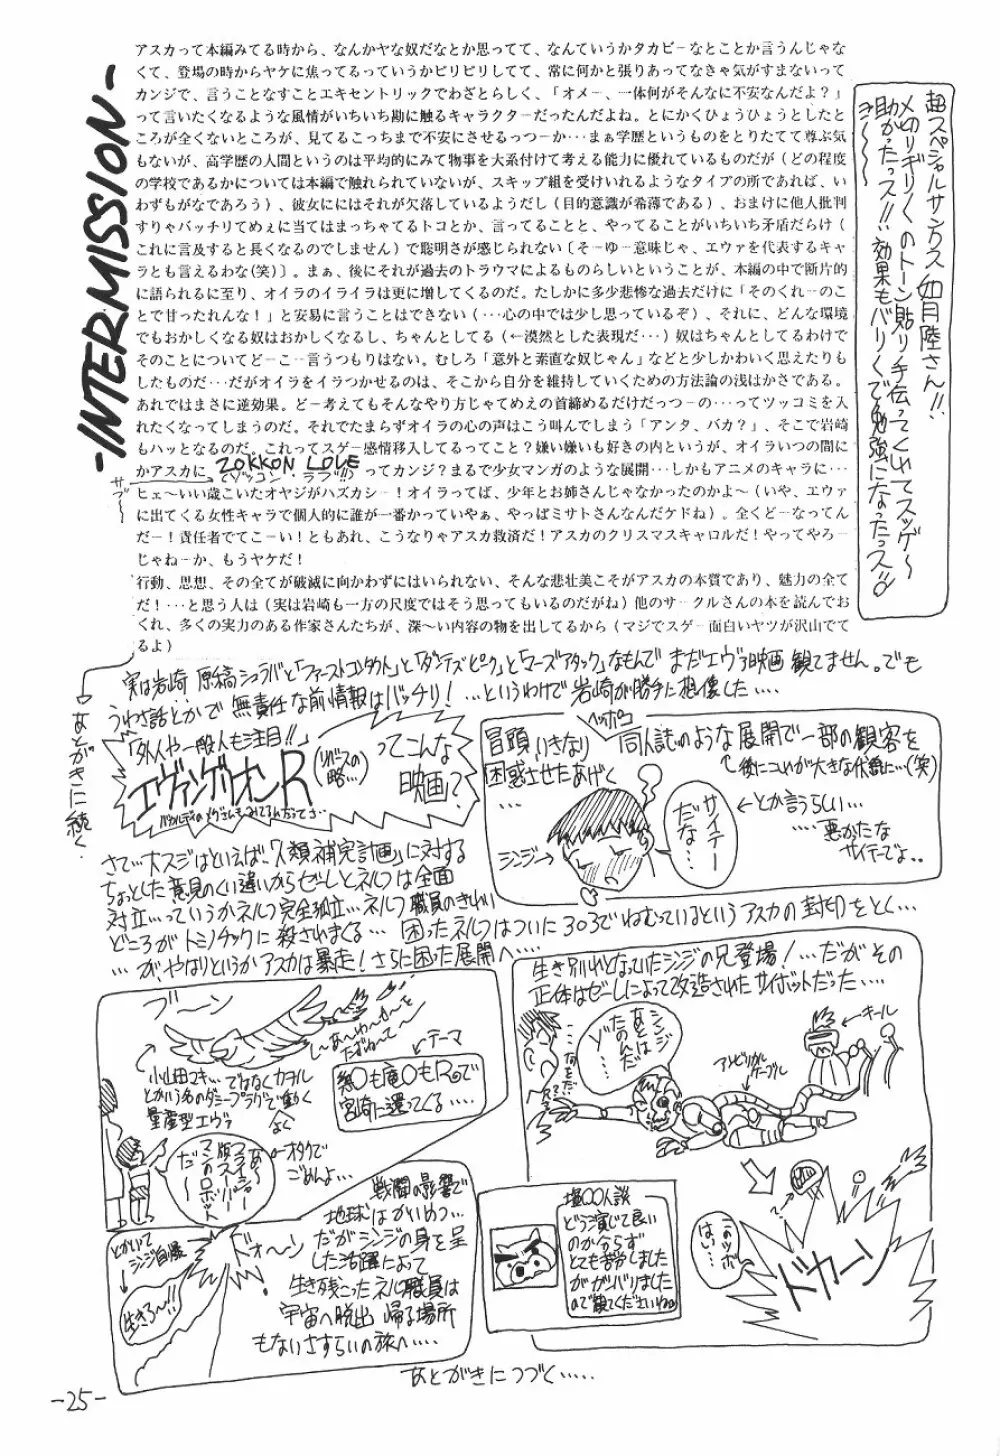 -INTERMISSION-
アスカって本編みてる時から、なんかヤな奴だなとか思ってて、なんていうかタカビーなとことか言うんじゃな
くて、登場の時からヤケに焦ってるっていうかピリピリしてて、常に何かと張りあってなきゃ気がすまないって
カンジで、言うことなすことエキセントリックでわざとらしく、「オメー、一体何がそんなに不安なんだよ？」
って言いたくなるような風情がいちいち勘に触るキャラクターだったんだよね。とにかくひょうひょうとしたと
ころが全くないところが、見てるこっちまで不安にさせるっつーか…まぁ学歴というものをとりたてて尊ぶ気
もないが、高学歴の人間というのは平均的にみて物事を大系付けて考える能力に優れているものだが（どの程度
の学校であるかについては本編で触れられていないが、スキップ組を受けいれるようなタイプの所であれば、い
わずもがなであろう）、彼女ににはそれが欠落しているようだし（目的意識が希薄である）、おまけに他人批判
すりゃバッチリてめぇに当てはまっちゃてるトコとか、言ってることと、やってることがいちいち矛盾だらけ（
これに言及すると長くなるのでしません）で聡明さが感じられない〔そーゆー意味じゃ、エヴァを代表するキャ
ラとも言えるわな(笑)〕。まぁ、後にそれが過去のトラウマによるものらしいということが、本編の中で断片的
に語られるに至り、オイラのイライラは更に増してくるのだ。たしかに多少悲惨な過去だけに「そのくれーのこ
とで甘ったれんな！」と安易に言うことはできない（…心の中では少し思っているぞ）、それに、どんな環境
でもおかしくなる奴はおかしくなるし、ちゃんとしてる（←漠然とした表現だ…）奴はちゃんとしてるわけで
そのことについてどーこー言うつもりはない。むしろ「意外と素直な奴じゃん」などと少しかわいく思えたりも
したものだ…だがオイラをイラつかせるのは、そこから自分を維持していくための方法論の浅はかさである。
あれではまさに逆効果。どー考えてもそんなやり方じゃてめえの首締めるだけだっつーの…ってツッコミを入
れたくなってしまうのだ。それでたまらずオイラの心の声はこう叫んでしまう「アンタ、バカ？」、そこで岩崎
もハッとなるのだ。これってスゲー感情移入してるってこと？嫌い嫌いも好きの内というが、オイラいつの間に
かアスカに ZOKKON LOVE ってカンジ？まるで少女マンガのような展開…しかもアニメのキャラに…
(ゾッコン・ラブ!!)
サブ〜
ヒェ〜いい歳こいたオヤジがハズカシー！オイラってば、少年とお姉さんじゃなかったのかよ〜（いや、エヴァ
に出てくる女性キャラで個人的に誰が一番かっていやぁ、やっぱミサトさんなんだケドね）。全くどーなってん
だー！責任者でてこーい！ともあれ、こうなりゃアスカ救済だ！アスカのクリスマスキャロルだ！やってやろー
じゃねーか、もうヤケだ！
行動、思想、その全てが破滅に向かわずにはいられない、そんな悲壮美こそがアスカの本質であり、魅力の全て
だ！…と思う人は（実は岩崎も一方の尺度ではそう思ってもいるのだがね）他のサークルさんの本を読んでお
くれ、多くの実力のある作家さんたちが、深〜い内容の物を出してるから（マジでスゲー面白いヤツが沢山でて
るよ）
→あとがきに続く
超スペシャルサンクス 如月陸さん!!
〆切りギリギリのトーン貼り手伝ってくれてスッゲ〜
助かったっス!! 効果もバリバリで勉強になったっス!!
実は岩崎 原稿シュラバと「ファーストコンタクト」と「ダンテズ・ピーク」と「マーズアタック」なもんで まだエヴァ映画観てません。でも
うわさ話とかで 無責任な前情報はバッチリ！…というわけで 岩崎が勝手に想像した…
「外人や一般人も注目!!」
エヴァンゲリオンR
(リバースの略…)
ってこんな
映画？
冒頭いきなり ヘッポコ 同人誌のような展開で一部の観客を
困惑させたあげく
…
後にコレが大きな伏線に…(笑)
シンジ→
サイテーだな…
←とか言うらしい…
…悪かたな
サイテーでよ…
さて…大スジはといえば、「人類補完計画」に対する
ちょっとした意見のくい違いからゼーレとネルフは全面
対立…っていうかネルフ完全孤立…ネルフ職員のきれい
どころがトミノチックに殺されまくる… 困ったネルフはついに303でねむっているというアスカの封印をとく…
…が、やはりというかアスカは暴走！さらに困った展開へ…
ブーン
小山田マキ…ではなくカヲル
とかいう名のダミープラグで動く
量産型エヴァ
なぐ
←テーマ
無〇も庵〇もRで
宮崎に還ってくる…
あ〜
フライシャー版スーパーマンのロボットだ〜
←オタクで
ごめんよ…
とかいて
シンジ自爆
生きろ〜!!
ドォーン
戦闘の影響で
地球はかいめつ…
だがシンジの身を呈
した活躍によって
生き残ったネルフ職員は
宇宙へ脱出 帰る場所
もないさすらいの旅へ…
生き別れとなっていたシンジの兄登場！…だがその
正体はゼーレによって改造されたサイボットだった…
シンジ
あとはたのんだゾ
なにをだ…
アンビリカルケーブル
←キール
このツボはい…
ドカーン
塩〇〇人談
どう演じて良い
のか分らず
とても苦労しました
がガンバリました
ので観てくださいね
あとがきにつづく……
-25-